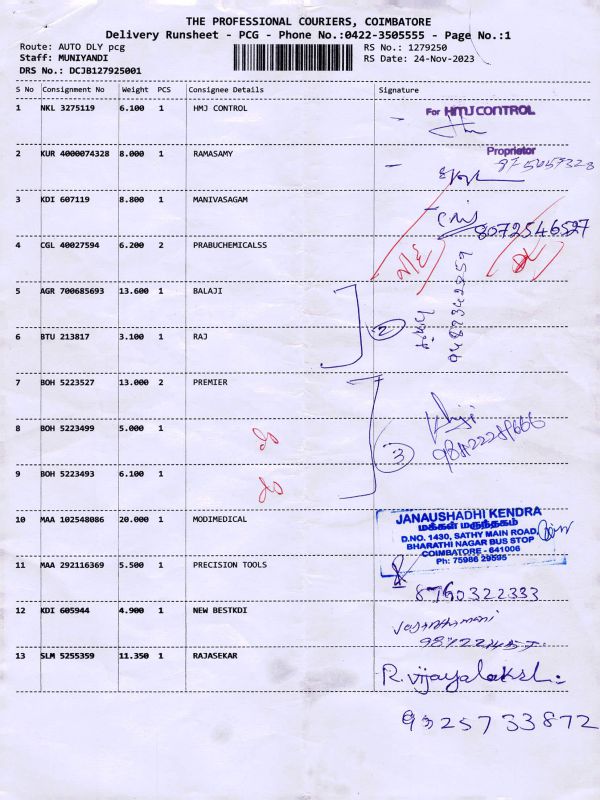 THE PROFESSIONAL COURIERS, COIMBATORE
Delivery Runsheet - PCG - Phone No.:0422-3505555 - Page No.:1
Route: AUTO DLY pcg RS No.: 1279250
Staff: MUNIYANDI RS Date: 24-Nov-2023
DRS No.: DCJB127925001
S No Consignment No Weight PCS Consignee Details Signature
1 NKL 3275119 6.100 1 HMJ CONTROL
For HMJ CONTROL
Proprietor
2 KUR 4000074328 8.000 1 RAMASAMY
3 KDI 607119 8.800 1 MANIVASAGAM
8072546527
4 CGL 40027594 6.200 2 PRABUCHEMICALSS
N/E
5 AGR 700685693 13.600 1 BALAJI
2
6 BTU 213817 3.100 1 RAJ
7 BOH 5223527 13.000 2 PREMIER
8 BOH 5223499 5.000 1 do
3
9 BOH 5223493 6.100 1 do
10 MAA 102548086 20.000 1 MODIMEDICAL
JANAUSHADHI KENDRA
மக்கள் மருந்தகம்
D.NO. 1430, SATHY MAIN ROAD,
BHARATHI NAGAR BUS STOP
COIMBATORE - 641006
Ph: 75986 29595
11 MAA 292116369 5.500 1 PRECISION TOOLS
8760322333
12 KDI 605944 4.900 1 NEW BESTKDI
13 SLM 5255359 11.350 1 RAJASEKAR
R. Vijayalakshi
9325733872